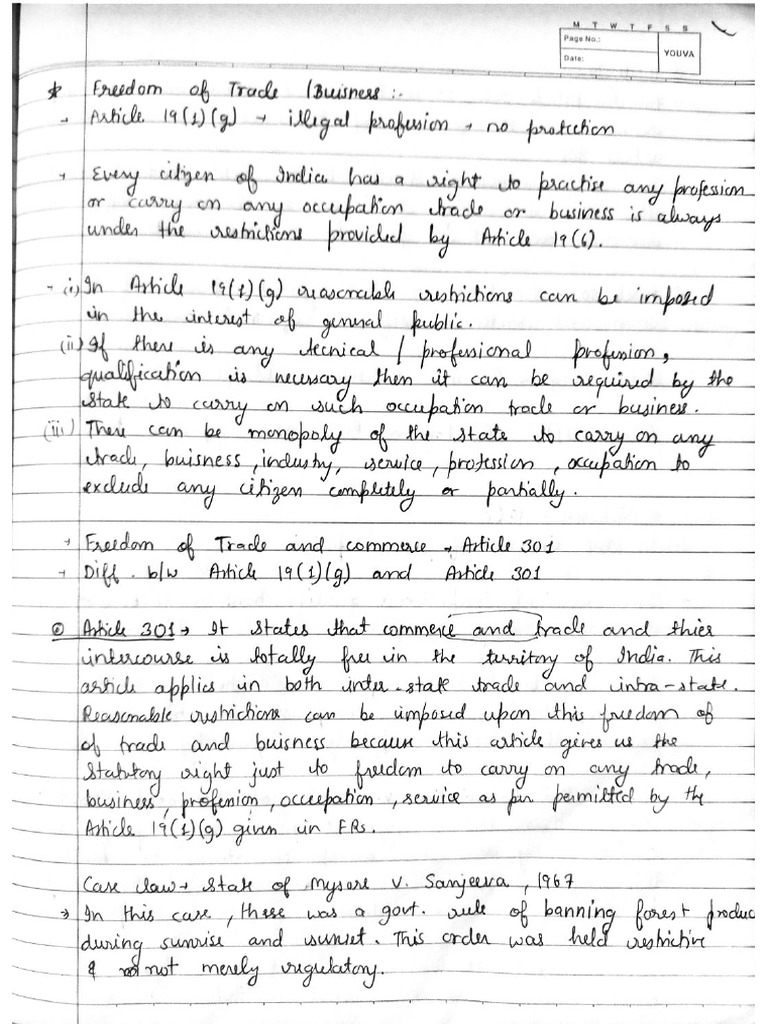 M T W T F S S
Page No.:
Date:
YOUVA
* Freedom of Trade / Buisness :-
→ Article 19(1)(g) → illegal profession → no protection
→ Every citizen of India has a right to practise any profession
or carry on any occupation trade or business is always
under the restrictions provided by Article 19(6).
→ (i) In Article 19(1)(g) reasonable restrictions can be imposed
in the interest of general public.
(ii) If there is any tecnical / professional profession,
qualification is necessary then it can be required by the
state to carry on such occupation trade or business.
(iii) There can be monopoly of the state to carry on any
trade, buisness, industry, service, profession, occupation to
exclude any citizen completely or partially.
→ Freedom of Trade and commerce → Article 301
→ Diff. b/w Article 19(1)(g) and Article 301
Article 301 → It states that commerce and trade and thier
intercourse is totally free in the territory of India. This
article applies in both inter-state trade and intra-state.
Reasonable restrictions can be imposed upon this freedom of
of trade and buisness because this article gives us the
statutory right just to freedom to carry on any trade,
business, profession, occupation, service as per permitted by the
Article 19(1)(g) given in FRs.
Case law → State of Mysore v. Sanjeeva, 1967
→ In this case, there was a govt. rule of banning forest produc
during sunrise and sunset. This order was held restrictive
& not merely regulatory.